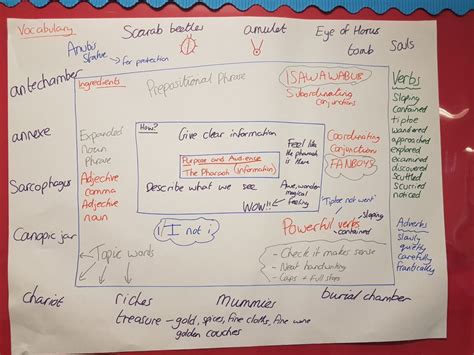 Vocabulary
Scarab beetles
amulet
Eye of Horus
Anubis
Statue
for protection
tomb
Sails
antechamber
annexe
Sarcophagus
Canopic jar
chariot
riches
Mummies
burial chamber
treasure - gold, spices, fine cloths, fine wine
golden couches
Ingredients
Prepositional Phrase
ISAWAWABUB
Subordinating
Conjunctions
Expanded
Noun
Phrase
Adjective
comma
Adjective
noun
Coordinating
Conjunction
FANBOYS
I not i
Topic words
Powerful verbs
sloping
contained
'Tiptoe not went'
- Check it makes sense
- Neat handwriting
- Caps + Full stops
How?
Give clear information
Feel like
the pharaoh
is there
Purpose and Audience
The Pharaoh (information)
Describe what we see
Awe, wonder
magical
feeling
WOW!!
Verbs
Sloping
contained
tiptoe
wandered
approached
explored
examined
discovered
Scuttled
Scurried
noticed
Adverbs
Slowly
quietly
Carefully
frantically